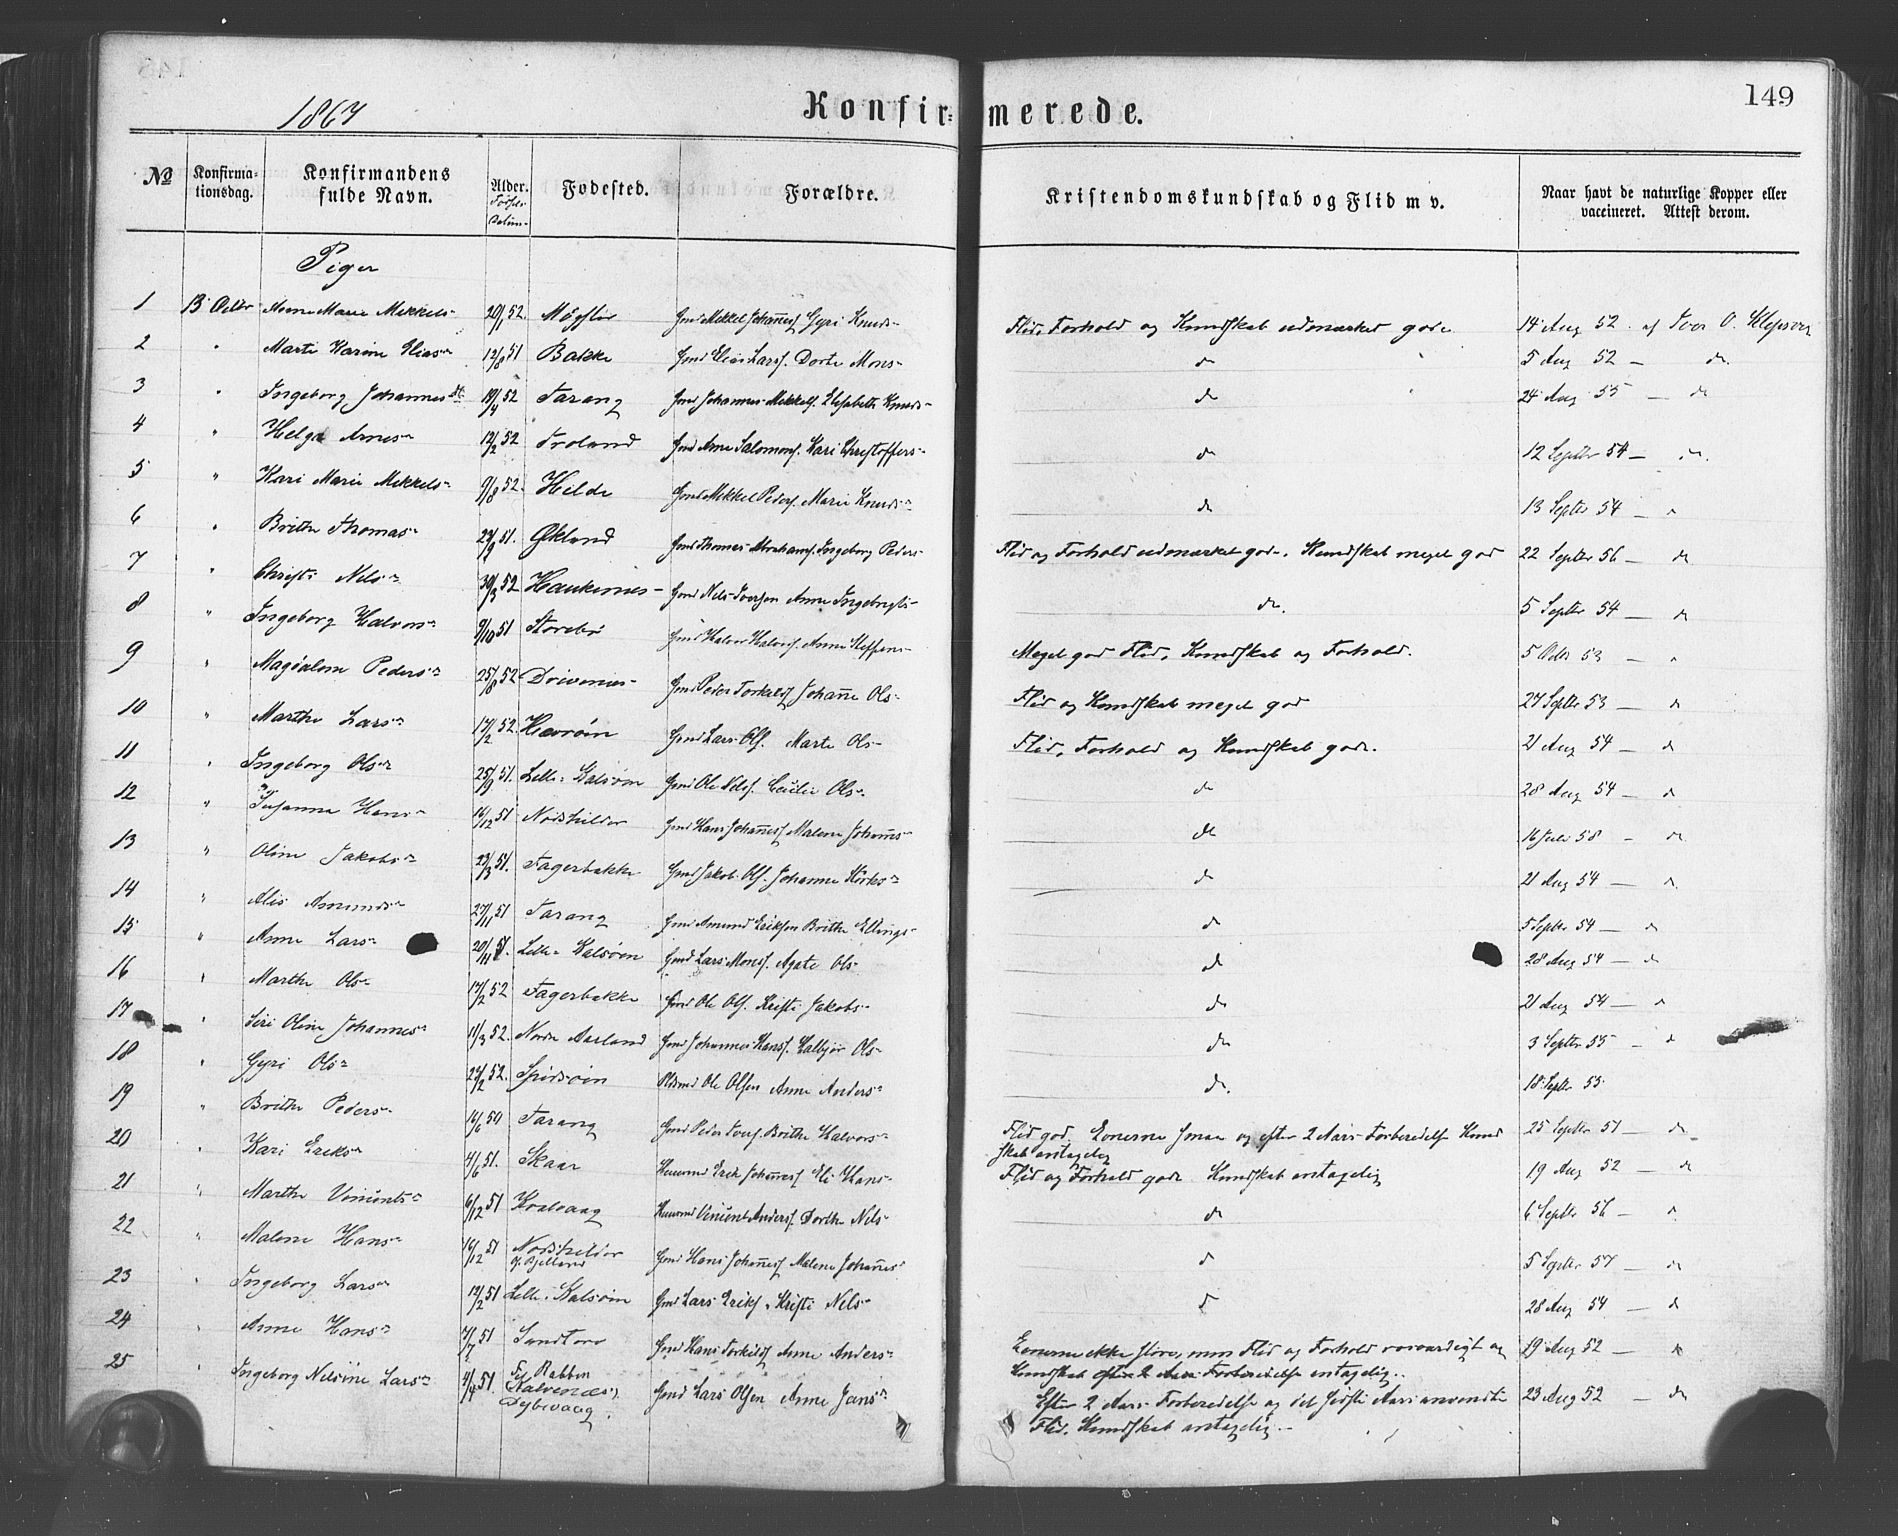 1867 Konfirmerede. 149
№ Konfirmationsdag. Konfirmandens fulde Navn. Alder. Fødsels Datum Fodested. Forældre. Kristendomskundskab og Flid m v. Naar havt de naturlige Kopper eller vaccineret. Attest derom.
Piger
1 13 Octbr Anne Marie Mekkels- 20/1 52. Møgster Gmd Mekkel Johannesf Gyri Knuds- Flid, Forhold og Kundskab udmærket gode 14 Aug 52. af Iver O. Klepsvig
2 " Marte Karine Elias- 12/8 51 Bakke Gmd Elias Larsf. Dorte Mons- do 5 Aug 52 — do.
3 " Ingeborg Johannesdt 19/4 52 Tarang Gmd Johannes Mekkelf. Elisabeth Knuds- do 24 Aug 55 — do
4 " Helga Arnes- 12/2 52 Troland Gmd Arne Salomonf. Kari Christoffers- do 12 Septbr 54 — do.
5 " Kari Marie Mekkels- 9/8 52. Hilde Gmd Mekkel Pedersf. Marie Knuds- do 13 Septbr 54 —
6 " Brithe Thomas- 29/9 51. Økland Gmd Thomas Abrahamf. Ingeborg Peders- Flid og Forhold udmærket gode. Kundskab meget god 22 Septbr 56 — do
7 " Christi Nels- 30/3 52 Haukenes- Gmd Nels Iversen Anne Ingebrigts- do. 5 Septbr 54 — do
8 " Ingeborg Halvors- 9/10 51 Storebø Gmd Halvor Halvorsf. Anne Steffens- Meget god Flid, Kundskab og Forhold. 5 Octr 53 —
9 " Magdalene Peders- 25/8 52 Drivenes- Gmd Peder Torkelsf Johanne Ols- Flid og Kundskab meget god 27 Septbr 53 — do
10 " Marthe Lars- 17/2 52. Havrøen Gmd Lars Olf. Marte Ols- Flid, Forhold og Kundskab gode. 21 Aug 54 — do
11 " Ingeborg Ols- 25/9 51. Lille-Kalsøen Gmd Ole Nelsf. Cecilie Ols- do 28 Aug 54 — do
12 " Susanna Hans- 16/12 51 Nordhilder Gmd Hans Johannesf Malene Johannes- do 16 Juli 58 — do
13 " Oline Jakobs- 23/3 51. Fagerbakke Gmd Jakob Olf. Johanna Størks- do 21 Aug 54 —
14 " Alis Amunds- 27/11 51 Tarang Gmd Amund Eriksen Brithe Ellings- do 5 Septbr 54 — do
15 " Anne Lars- 20/11 51. Lille-Kalsøen Gmd Lars Monsf. Agate Ols- do 28 Aug 54 — do
16 " Marthe Ols- 17/2 52 Fagerbakke Gmd Ole Olf. Kristi Jakobs- do 21 Aug 54 —
17 " Siri Oline Johannes- 11/3 52. Nordre Aarland Gmd Johannes Hansf. Valbjør Ols- do 3 Septbr 55 —
18 " Gyri Ols- 24/2 52. Spidsøen Pldsmd Ole Olsen Anne Anders- do. 18 Septbr 53
19 " Brithe Peders- 16/6 50 Tarang Gmd Peder Iversf. Brithe Halvors- Flid god. Evnerne smaa og efter 2 Aars Forberedelse Kund
skab antagelig 25 Septbr 51 — do
20 " Kari Eriks- 4/6 51. Skaar Huusmd Erik Johannesf Eli Hans- Flid og Forhold gode Kundskab antagelig 19 Aug 52 — do
21 " Marthe Vincents- 6/12 51 Kvalvaag Huusmd Vincent Andersf. Dorthe Nils- do 6 Septbr 56 —
22 " Malene Hans- 16/12 51 Nordhilder
Gmd Hans Johannesf Malene Johannes- do 5 Septbr 57 — do
23 " Ingeborg Lars- 12/2 51 Lille-Kalsøen Gmd Lars Eriksf. Kristi Nels- do 28 Aug 54 — do
24 " Anne Hans- 7/7 51 Sandtorv Gmd Hans Torkilsf Anne Anders- Evnerne ikke store, men Flid og Forhold rosværdigt og 29 Aug 52 — do
Kundskab efter 2 Aars Forberedelse antagelig.
25 " Ingeborg Nelsine Lars- 4/4 51. Rabben
Kalvenæs
Dybevaag. Gmd Lars Olsen Anne Jans- Efter 2 Aars Forberedelse og det sidste Aars anvendte 23 Aug 52 — do
Flid, Kundskab antagelig.